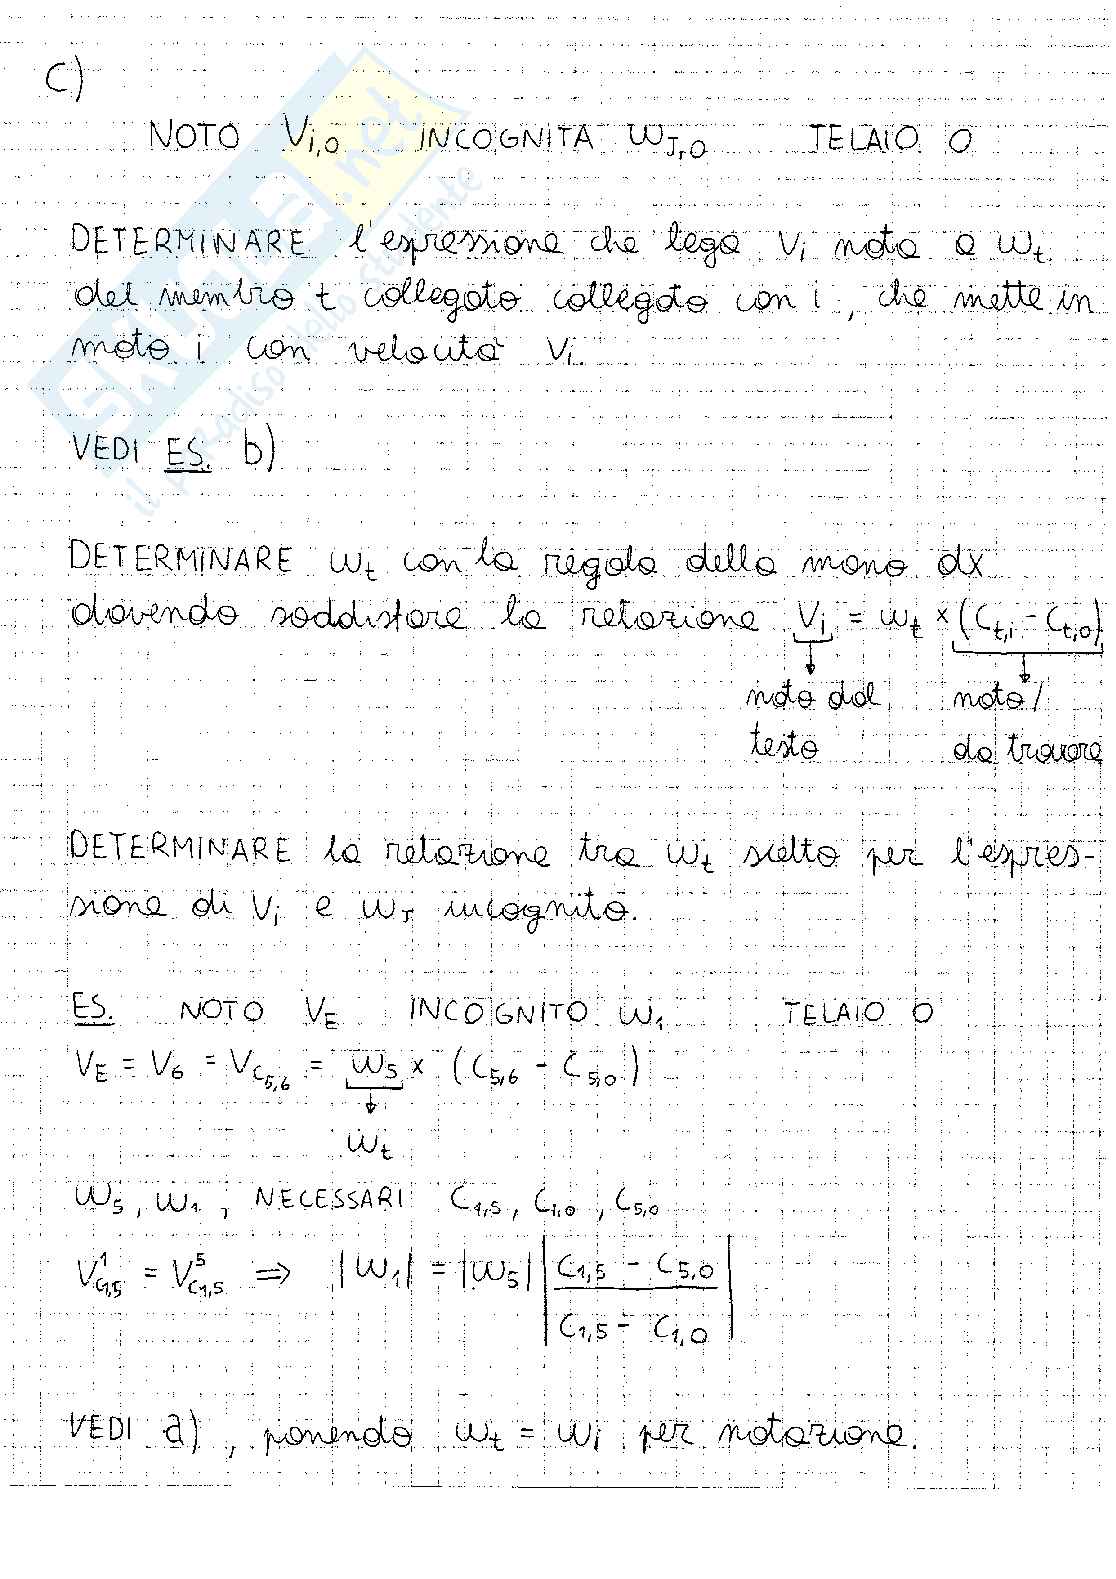 C)
NOTO Vi,0 INCOGNITA ωJ,0 TELAIO 0
DETERMINARE l'espressione che lega Vi nota a ωt
del membro t collegato collegato con i, che mette in
moto i con velocità Vi.
VEDI ES. b)
DETERMINARE ωt con la regola della mano dx
dovendo soddisfare la relazione Vi = ωt × (Ct,i - Ct,0)
noto dal noto/
testo da trovare
DETERMINARE la relazione tra ωt scelto per l'espres-
sione di Vi e ωJ incognito.
ES. NOTO VE INCOGNITO ω1 TELAIO 0
VE = V6 = VC5,6 = ω5 × (C5,6 - C5,0)
ωt
ω5, ω1, NECESSARI C1,5, C1,0, C5,0
V¹C1,5 = V⁵C1,5 ⇒ |ω1| = |ω5| |C1,5 - C5,0|
|C1,5 - C1,0|
VEDI a), ponendo ωt = ωi per notazione.
skuola.net
il paradiso dello studente